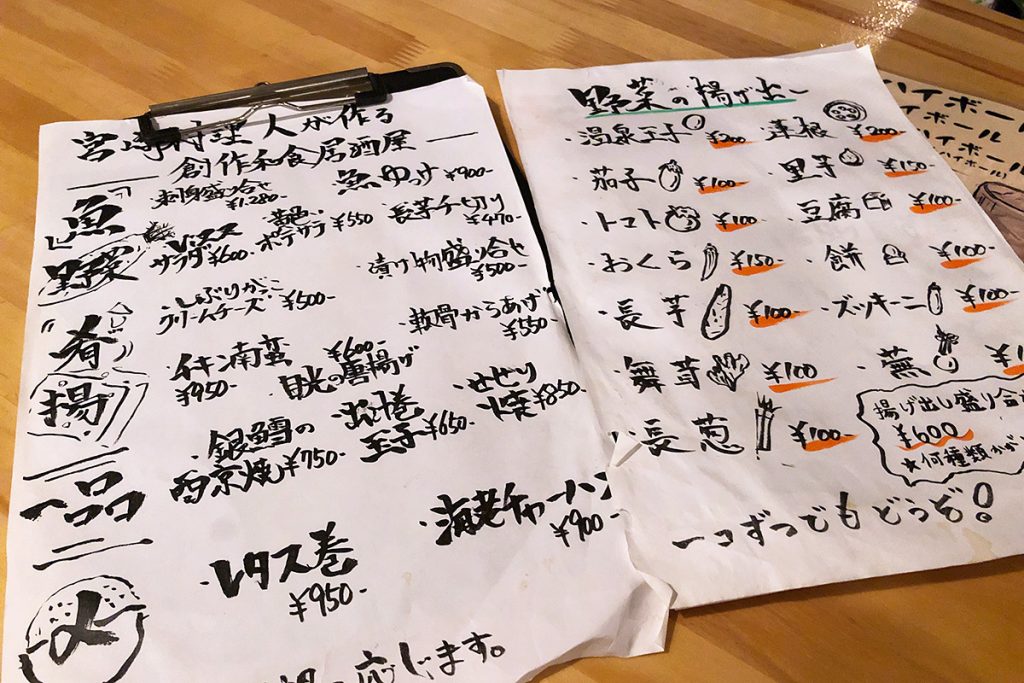 宮崎料理人が作る
創作和食居酒屋
「魚」
刺身盛り合せ ¥1.280-
魚ゆっけ ¥900-
野菜
レタスサラダ ¥600-
ポテサラ ¥550
・長芋千切り ¥470-
・いぶりがっこクリームチーズ ¥500-
・漬け物盛り合せ ¥500-
"肴"
揚
・チキン南蛮 ¥950-
・目光の唐揚げ ¥600-
・軟骨からあげ ¥550-
一品
・銀鱈の西京焼 ¥750-
・出し巻玉子 ¥650-
・せせり焼 ¥850-
〆
・レタス巻 ¥950-
・海老チャーハン ¥900-
応じます。
野菜の揚げ出し
・温泉玉子 ¥200-
・蓮根 ¥200-
・茄子 ¥100-
・里芋 ¥150-
・トマト ¥100-
・豆腐 ¥100-
・おくら ¥150-
・餅 ¥100-
・長芋 ¥100-
・ズッキーニ ¥100-
・舞茸 ¥100-
・蕪
・長葱 ¥100-
揚げ出し盛り合
¥600
★何種類かが
一コずつでもどうぞ!
ハイボール
イボール
ハイボール
ハイボール